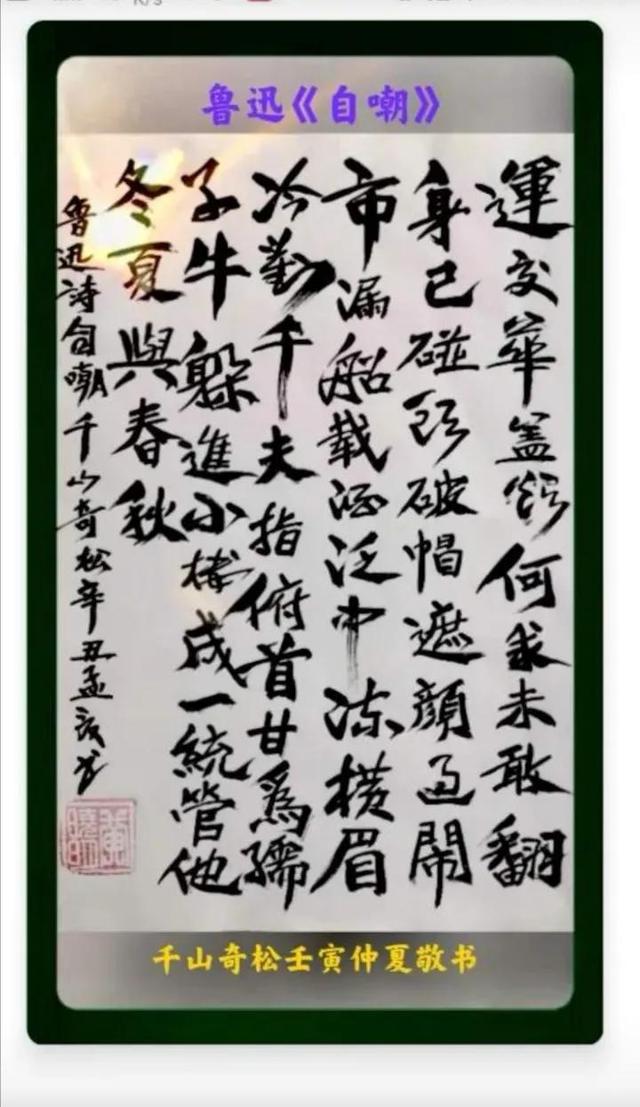 鲁迅《自嘲》
運交華盖欲何求未敢翻
身已碰頭破帽遮顔過鬧
市漏船载酒泛中流横眉
冷對千夫指俯首甘爲孺
子牛躲進小樓成一統管他
冬夏與春秋
鲁迅詩自嘲千山奇松辛丑孟夏书
千山奇松壬寅仲夏敬书